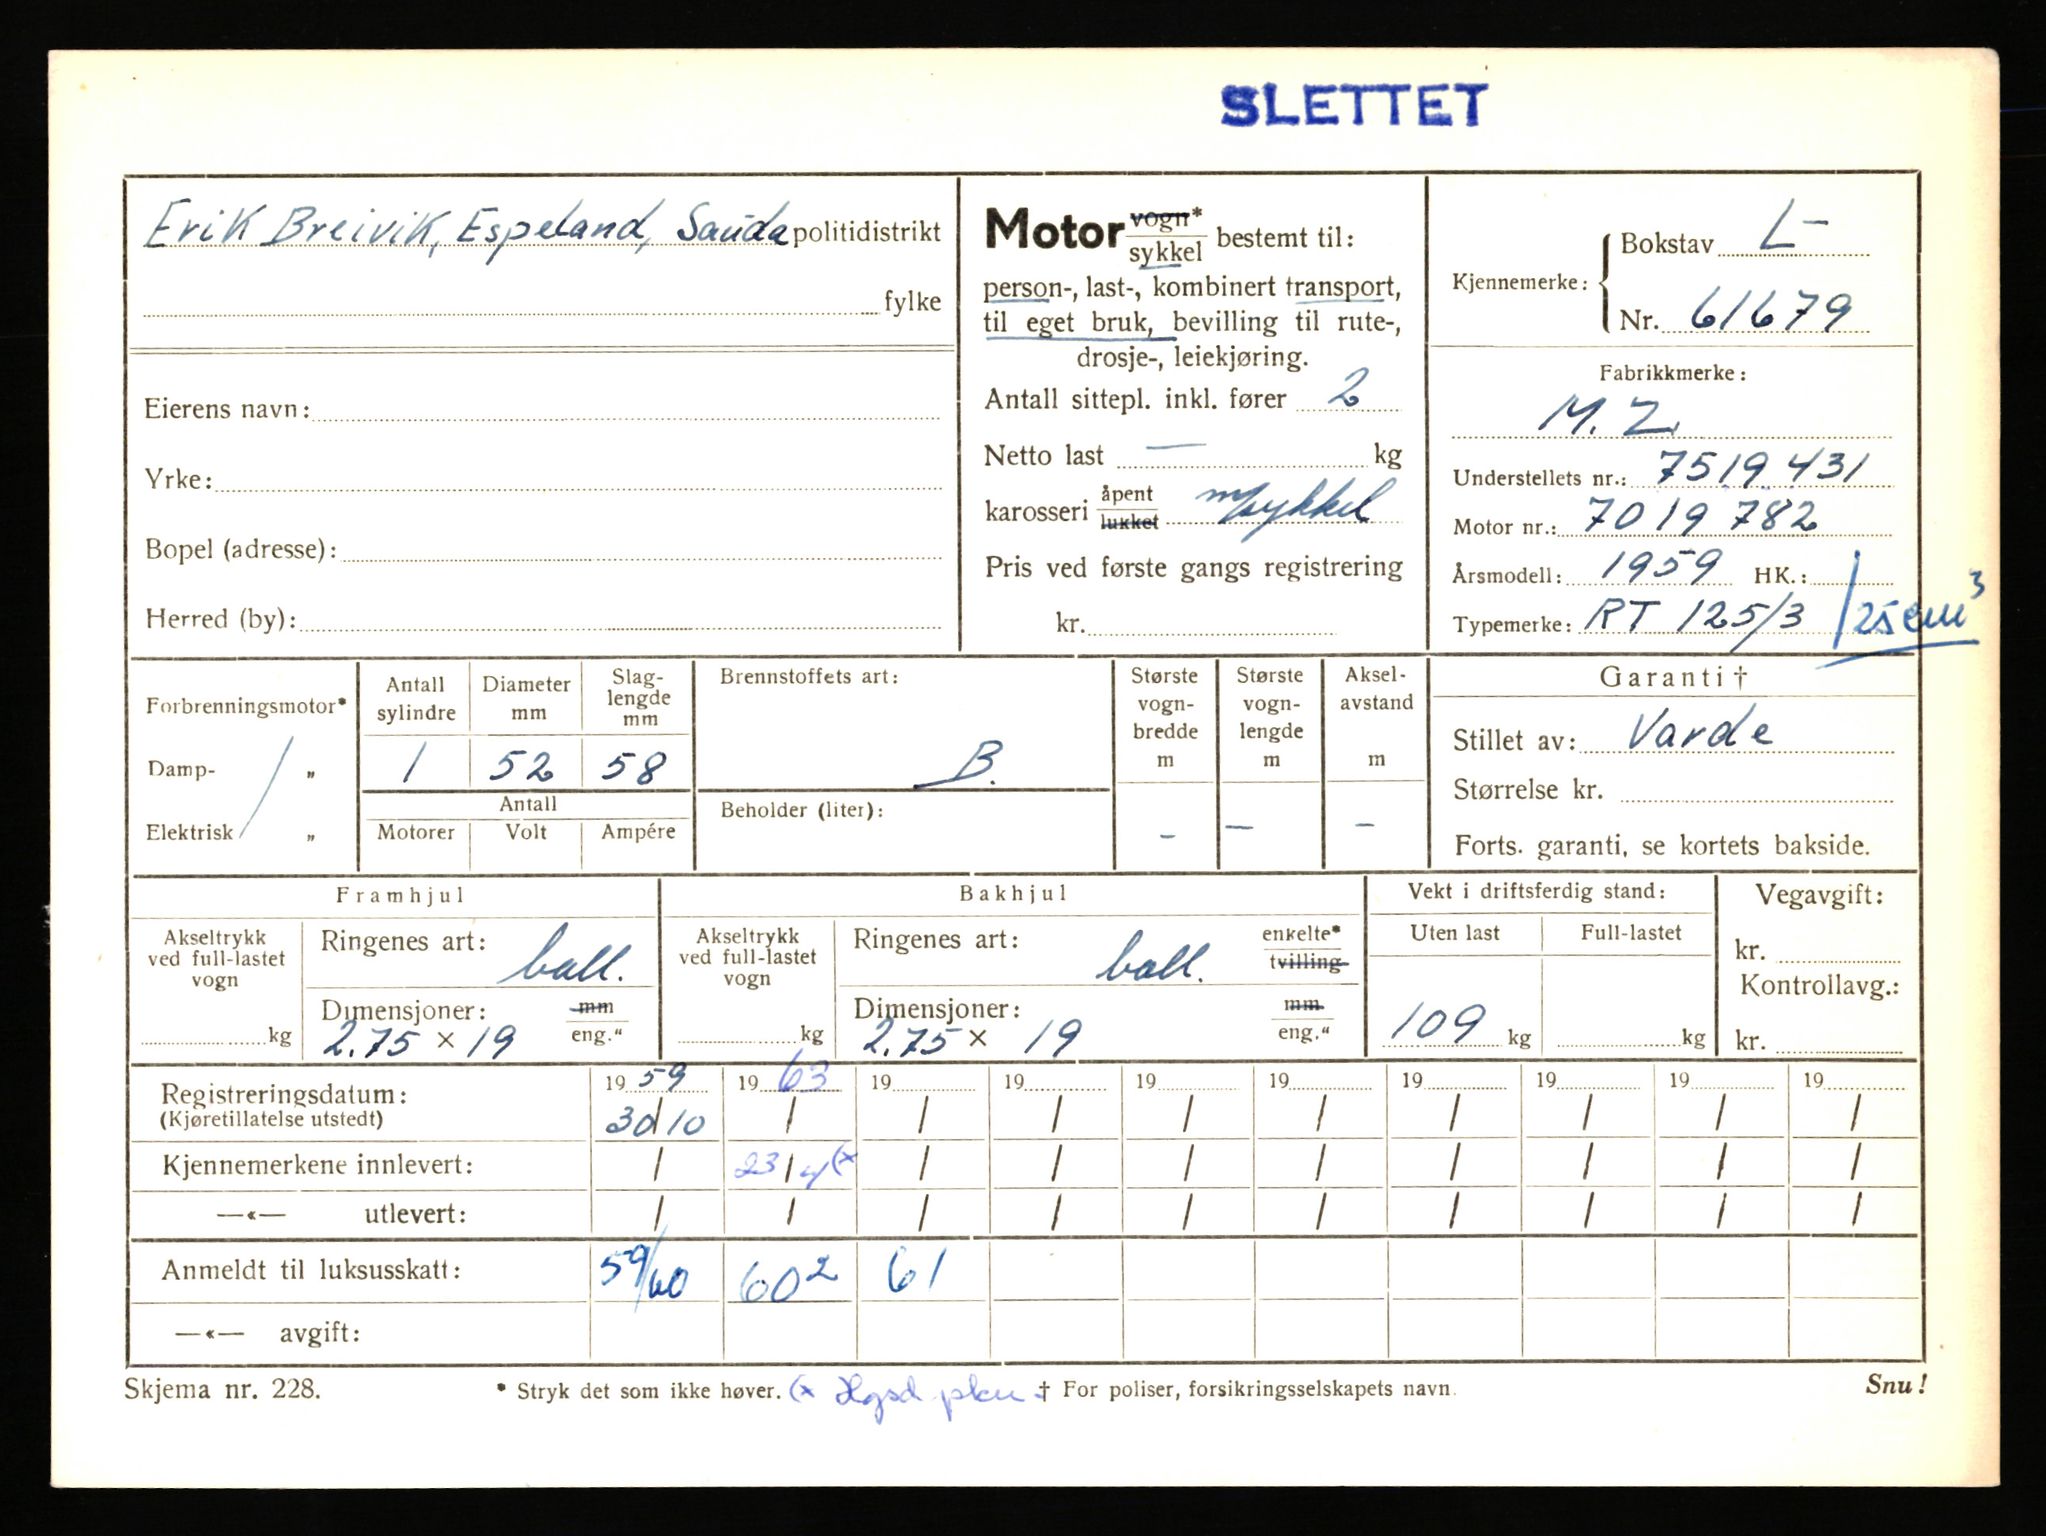 SLETTET
Erik Breivik, Espeland, Sauda politidistrikt
fylke
Eierens navn:
Yrke:
Bopel (adresse):
Herred (by):
Motor vogn* sykkel bestemt til:
person-, last-, kombinert transport,
til eget bruk, bevilling til rute-,
drosje-, leiekjøring.
Antall sittepl. inkl. fører 2
Netto last — kg
karosseri åpent lukket m/sykkel
Pris ved første gangs registrering
kr.
Kjennemerke: Bokstav L-
Nr. 61679
Fabrikkmerke:
M.Z.
Understellets nr.: 7519431
Motor nr.: 7019782
Årsmodell: 1959 HK.:
Typemerke: RT 125/3 125 cm³
Forbrenningsmotor*
Damp- „
Elektrisk „
Antall sylindre
Diameter mm
Slag-lengde mm
1 52 58
Antall
Motorer Volt Ampére
Brennstoffets art:
B.
Beholder (liter):
Største vogn-bredde m
–
Største vogn-lengde m
–
Aksel-avstand m
–
Garanti †
Stillet av: Varde
Størrelse kr.
Forts. garanti, se kortets bakside.
Framhjul
Akseltrykk ved full-lastet vogn
kg
Ringenes art: ball.
Dimensjoner: mm eng."
2.75 x 19
Bakhjul
Akseltrykk ved full-lastet vogn
kg
Ringenes art: ball. enkelte* tvilling
Dimensjoner: mm eng."
2.75 x 19
Vekt i driftsferdig stand:
Uten last Full-lastet
109 kg kg
Vegavgift:
kr.
Kontrollavg.:
kr.
Registreringsdatum: 19 59 19 63 19 19 19 19 19 19 19 19
(Kjøretillatelse utstedt) 30/10 / / / / / / / / /
Kjennemerkene innlevert: / 23/4 (x / / / / / / / /
—«— utlevert: / / / / / / / / / /
Anmeldt til luksusskatt: 59/60 60² 61
—«— avgift:
Skjema nr. 228. * Stryk det som ikke høver. (x † For poliser, forsikringsselskapets navn. Snu!